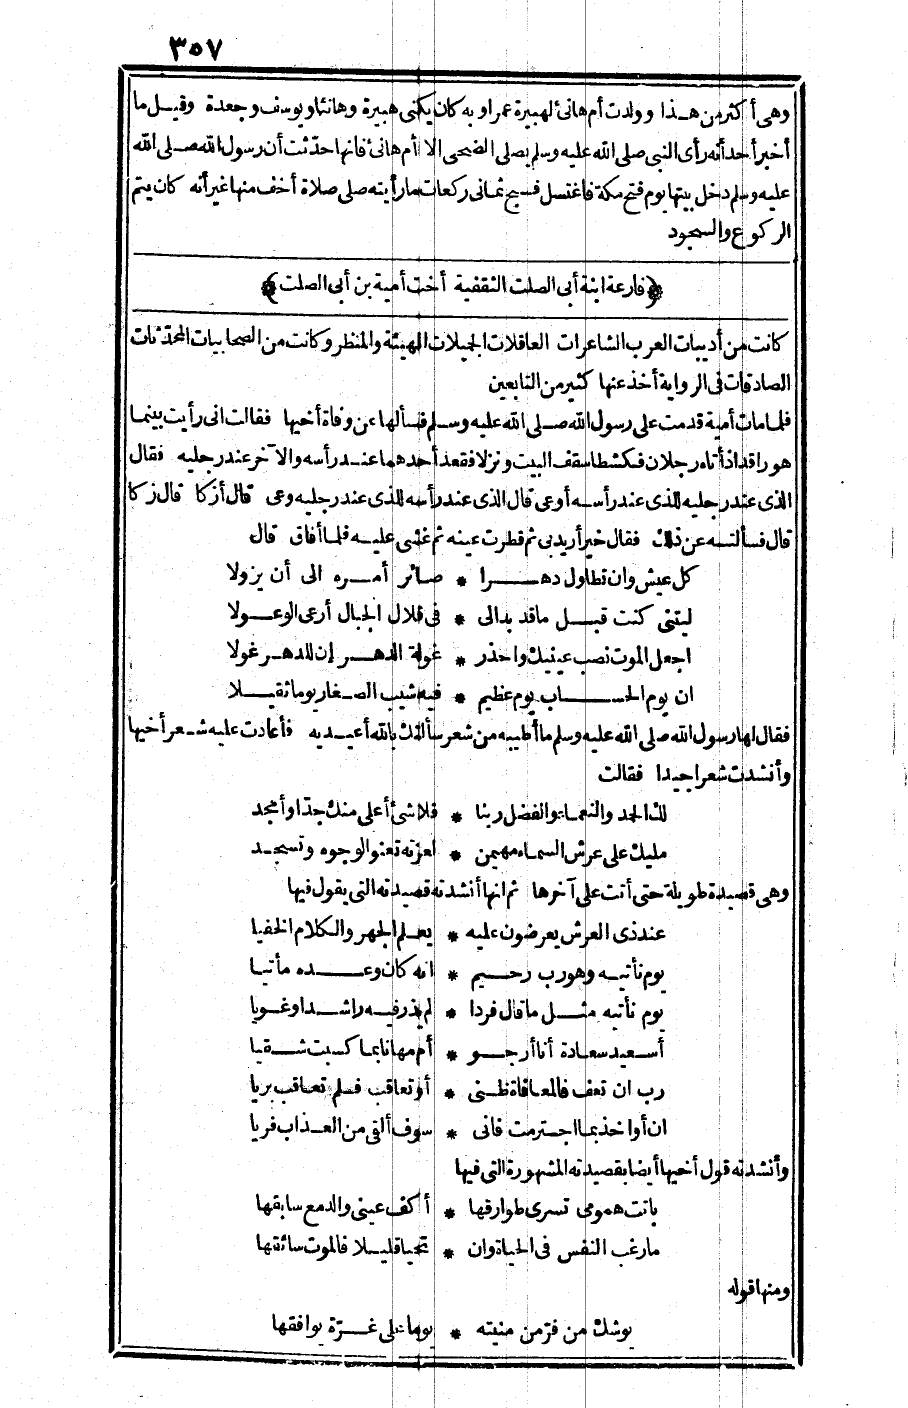 ٣٥٧
وهى أكثر من هـذا وولدت أم هانئ لهبيرة عمرا وبه كان يكنى هبيرة وهانئا ويوسف وجعدة وقيل ما
أخبر أحد أنه رأى النبى صلى الله عليه وسلم يصلى الضحى الا أم هانئ فانها حدّثت أن رسول الله صلى الله
عليه وسلم دخل بيتها يوم فتح مكة فاغتسل فسبح ثمانى ركعات ما رأيته صلى صلاة أخف منها غير أنه كان يتم
الركوع والسجود
﴿فارعة ابنة أبى الصلت الثقفية أخت أمية بن أبى الصلت﴾
كانت من أديبات العرب الشاعرات العاقلات الجميلات الهيئة والمنظر وكانت من الصحابيات المحدّثات
الصادقات فى الرواية أخذ عنها كثير من التابعين
فلما مات أمية قدمت على رسول الله صلى الله عليه وسلم فسألها عن وفاة أخيها فقالت انى رأيت بينما
هو راقد اذ أتاه رجلان فكشطا سقف البيت ونزلا فقعد أحدهما عند رأسه والآخر عند رجليه فقال
الذى عند رجليه للذى عند رأسه أوعى قال الذى عند رأسه للذى عند رجليه وعى قال أزكا قال زكا
قال فسألته عن ذلك فقال خير أريد بى ثم قطرت عينه ثم غشى عليه فلما أفاق قال
كل عيش وان تطاول دهرا * صائر أمره الى أن يزولا
ليتنى كنت قبل ما قد بدالى * فى قلال الجبال أرعى الوعولا
اجعل الموت نصب عينيك واحذر * غولة الدهر إن للدهر غولا
ان يوم الحساب يوم عظيم * فيه شيب الصغار يوما ثقيلا
فقال لها رسول الله صلى الله عليه وسلم ما أطيبه من شعر سألتك بالله أعيديه فأعادت عليه شعر أخيها
وأنشدت شعرا جيدا فقالت
لك الحمد والنعماء والفضل ربنا * فلا شئ أعلى منك جدّا وأمجد
مليك على عرش السماء مهيمن * لعزته تعنو الوجوه وتسجد
وهى قصيدة طويلة حتى أتت على آخرها ثم انها أنشدته قصيدته التى يقول فيها
عند ذى العرش يعرضون عليه * يعلم الجهر والكلام الخفيا
يوم نأتيه وهو رب رحيم * انه كان وعده مأتيا
يوم نأتيه مثل ما قال فردا * لم يذر فيه راشدا وغويا
أسعيد سعادة أنا أرجو * أم مهانا بما كسبت شقيا
رب ان تعف فالمعافاة ظنى * أو تعاقب فلم تعاقب بريا
ان أواخذ بما اجترمت فانى * سوف ألقى من العذاب فريا
وأنشدته قول أخيها أيضا بقصيدته المشهورة التى فيها
باتت همومى تسرى طوارقها * أكف عينى والدمع سابقها
ما رغب النفس فى الحياة وان * تحيا قليلا فالموت سائقها
ومنها قوله
يوشك من فرّ من منيته * يوما على غرّة يوافقها